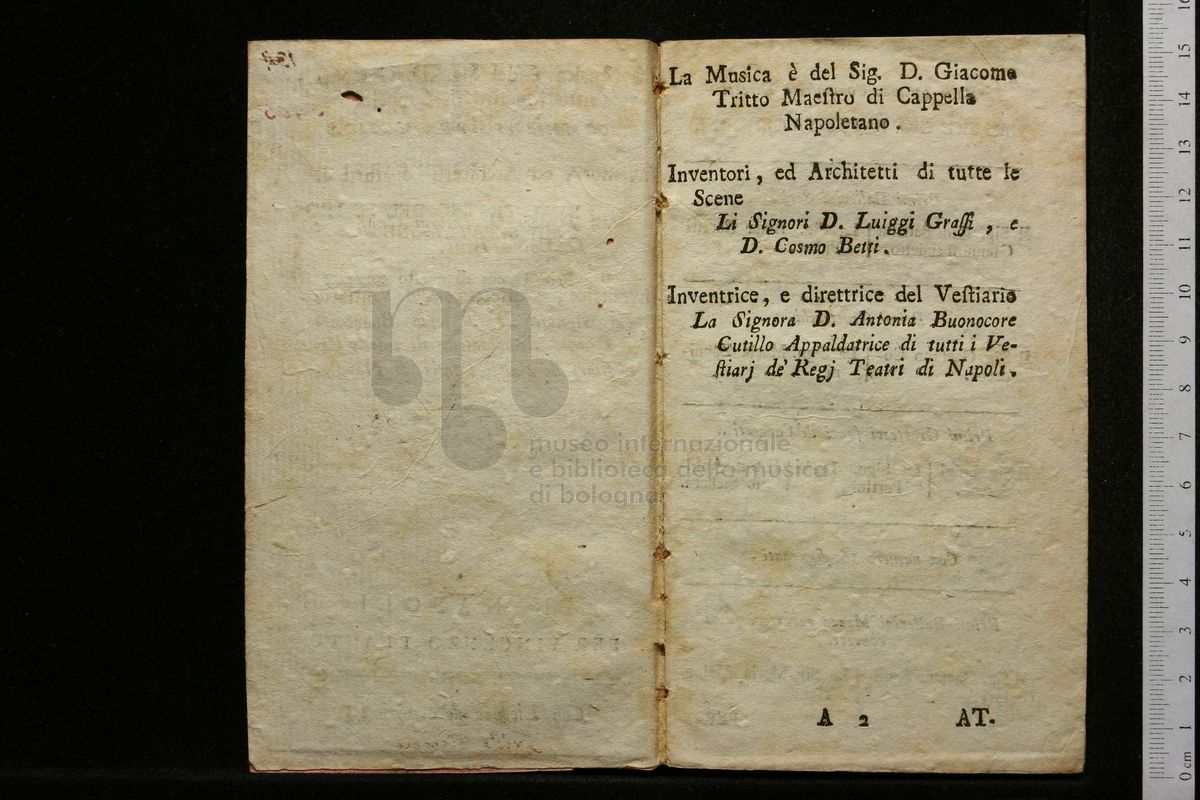 La Musica è del Sig. D. Giacomo
Tritto Maeſtro di Cappella
Napoletano.
Inventori, ed Architetti di tutte le
Scene
Li Signori D. Luiggi Graſſi, e
D. Cosmo Betti.
Inventrice, e direttrice del Veſtiario
La Signora D. Antonia Buonocore
Cutillo Appaldatrice di tutti i Ve-
ſtiarj de' Regj Teatri di Napoli.
A 2 AT.
museo internazionale
e biblioteca della musica
di bologna
0 cm 1 2 3 4 5 6 7 8 9 10 11 12 13 14 15 16